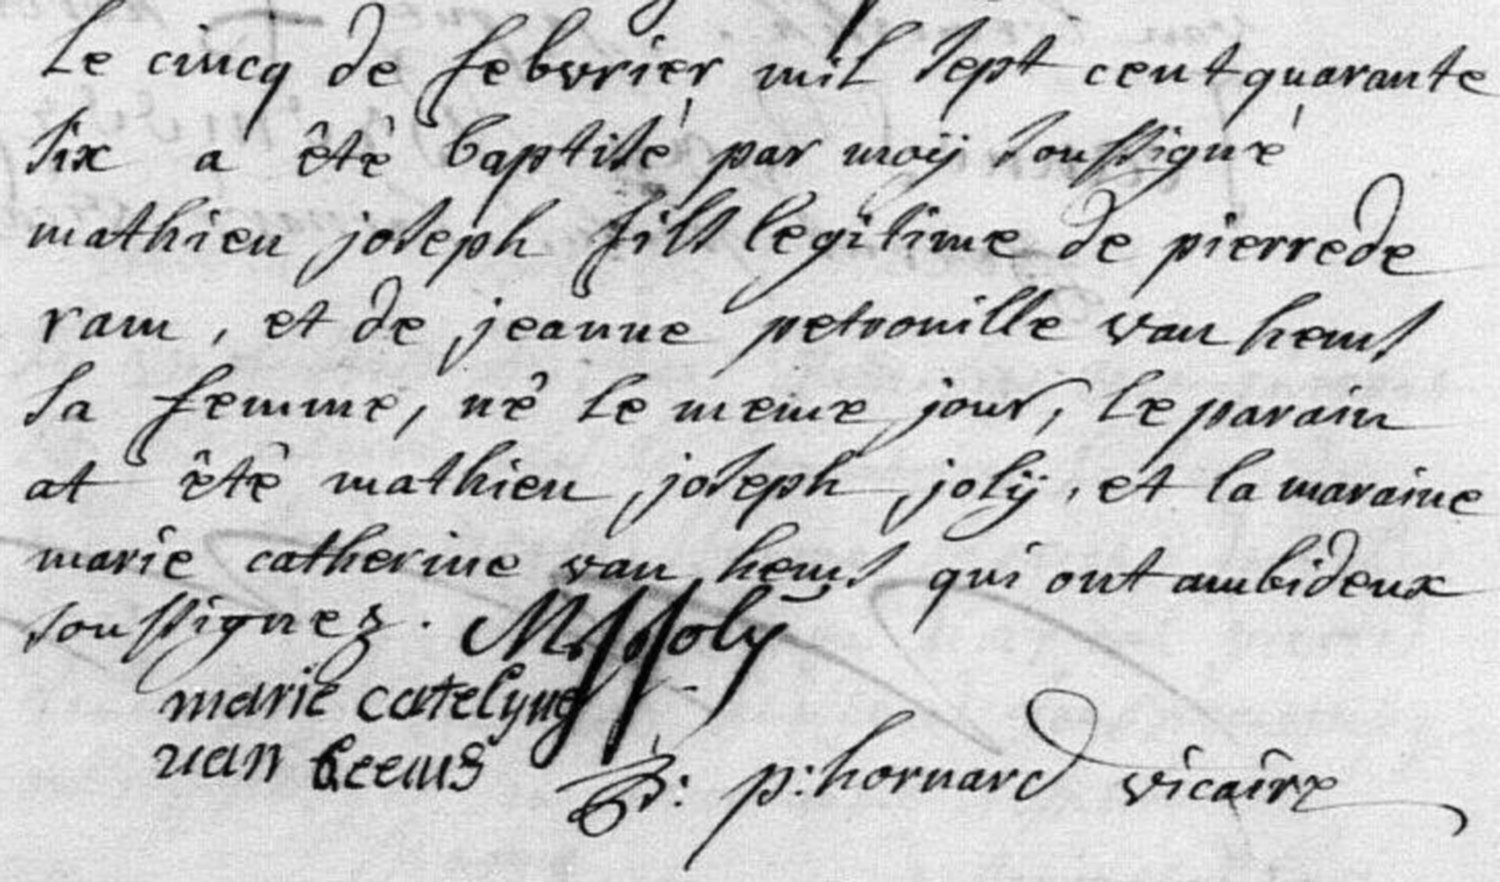 Le cincq de febvrier mil sept cent quarante
six a êtê baptisé par moÿ soussigné
mathieu joseph fils legitime de pierre de
ram, et de jeanne petronille van hems
sa femme, nê le meme jour, le parain
at êtê mathieu joseph jolÿ, et la maraine
marie catherine van hems qui ont ambideux
soussignez. M J Joly
marie catelyne
van heems
p: hornard vicaire